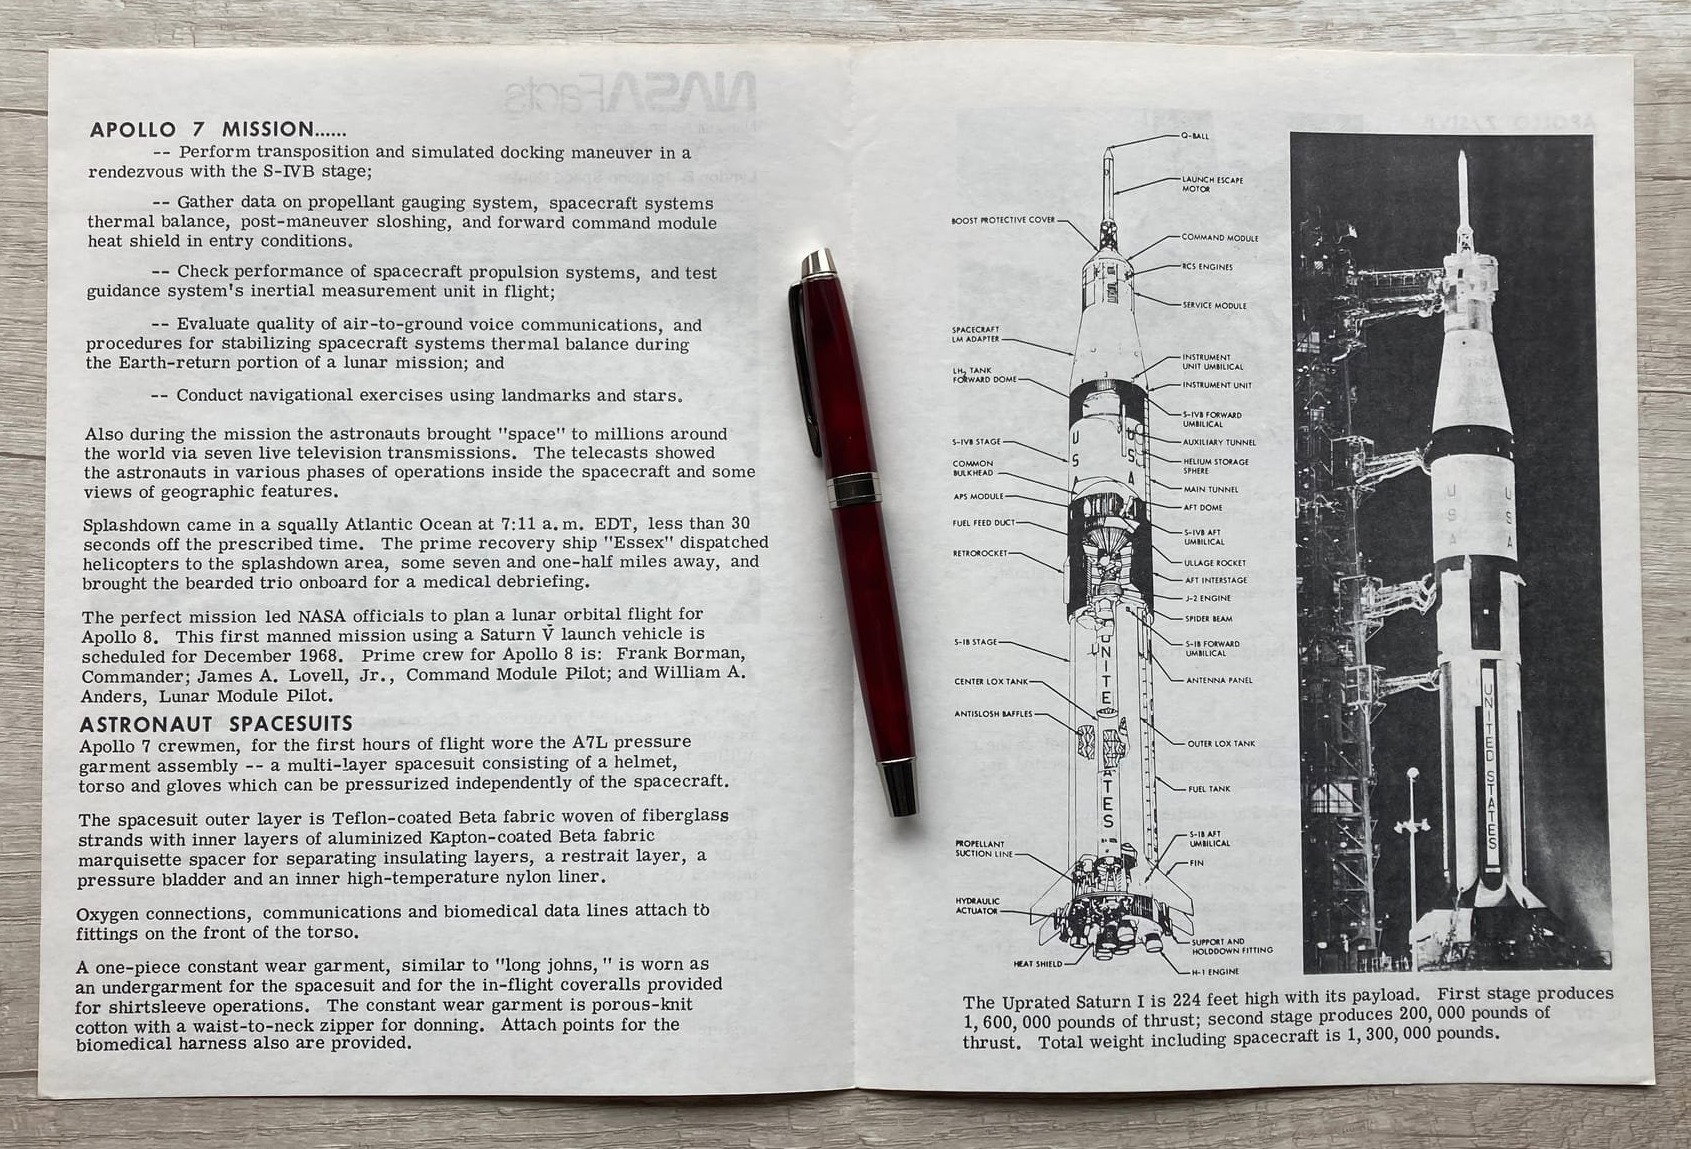 APOLLO 7 MISSION......
-- Perform transposition and simulated docking maneuver in a
rendezvous with the S-IVB stage;
-- Gather data on propellant gauging system, spacecraft systems
thermal balance, post-maneuver sloshing, and forward command module
heat shield in entry conditions.
-- Check performance of spacecraft propulsion systems, and test
guidance system's inertial measurement unit in flight;
-- Evaluate quality of air-to-ground voice communications, and
procedures for stabilizing spacecraft systems thermal balance during
the Earth-return portion of a lunar mission; and
-- Conduct navigational exercises using landmarks and stars.
Also during the mission the astronauts brought "space" to millions around
the world via seven live television transmissions. The telecasts showed
the astronauts in various phases of operations inside the spacecraft and some
views of geographic features.
Splashdown came in a squally Atlantic Ocean at 7:11 a.m. EDT, less than 30
seconds off the prescribed time. The prime recovery ship "Essex" dispatched
helicopters to the splashdown area, some seven and one-half miles away, and
brought the bearded trio onboard for a medical debriefing.
The perfect mission led NASA officials to plan a lunar orbital flight for
Apollo 8. This first manned mission using a Saturn V launch vehicle is
scheduled for December 1968. Prime crew for Apollo 8 is: Frank Borman,
Commander; James A. Lovell, Jr., Command Module Pilot; and William A.
Anders, Lunar Module Pilot.
ASTRONAUT SPACESUITS
Apollo 7 crewmen, for the first hours of flight wore the A7L pressure
garment assembly -- a multi-layer spacesuit consisting of a helmet,
torso and gloves which can be pressurized independently of the spacecraft.
The spacesuit outer layer is Teflon-coated Beta fabric woven of fiberglass
strands with inner layers of aluminized Kapton-coated Beta fabric
marquisette spacer for separating insulating layers, a restrait layer, a
pressure bladder and an inner high-temperature nylon liner.
Oxygen connections, communications and biomedical data lines attach to
fittings on the front of the torso.
A one-piece constant wear garment, similar to "long johns," is worn as
an undergarment for the spacesuit and for the in-flight coveralls provided
for shirtsleeve operations. The constant wear garment is porous-knit
cotton with a waist-to-neck zipper for donning. Attach points for the
biomedical harness also are provided.
Q-BALL
LAUNCH ESCAPE
MOTOR
BOOST PROTECTIVE COVER
COMMAND MODULE
RCS ENGINES
SERVICE MODULE
SPACECRAFT
LM ADAPTER
INSTRUMENT
UNIT UMBILICAL
LH2 TANK
FORWARD DOME
INSTRUMENT UNIT
S-IVB FORWARD
UMBILICAL
S-IVB STAGE
AUXILIARY TUNNEL
COMMON
BULKHEAD
HELIUM STORAGE
SPHERE
MAIN TUNNEL
APS MODULE
AFT DOME
FUEL FEED DUCT
S-IVB AFT
UMBILICAL
RETROROCKET
ULLAGE ROCKET
AFT INTERSTAGE
J-2 ENGINE
SPIDER BEAM
S-IB STAGE
S-IB FORWARD
UMBILICAL
CENTER LOX TANK
ANTENNA PANEL
ANTISLOSH BAFFLES
OUTER LOX TANK
FUEL TANK
S-IB AFT
UMBILICAL
PROPELLANT
SUCTION LINE
FIN
HYDRAULIC
ACTUATOR
SUPPORT AND
HOLDDOWN FITTING
HEAT SHIELD
H-1 ENGINE
USA
USA
UNITE
ATES
USA
USA
UNITED STATES
The Uprated Saturn I is 224 feet high with its payload. First stage produces
1,600,000 pounds of thrust; second stage produces 200,000 pounds of
thrust. Total weight including spacecraft is 1,300,000 pounds.